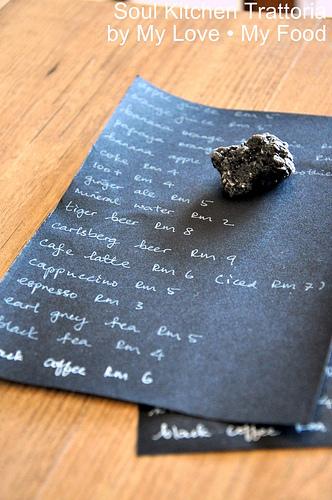 Soul Kitchen Trattoria
by My Love • My Food
apple juice Rm 5
orange juice
banana orange
papaya orange
banana apple smoothie
coke Rm 4
100+ Rm 4
ginger ale Rm 5
mineral water Rm 2
tiger beer Rm 8
carlsberg beer Rm 9
cafe latte Rm 6 (iced Rm 7)
cappuccino Rm 5
espresso Rm 3
earl grey tea Rm 5
black tea Rm 4
black coffee Rm 6
black coffee